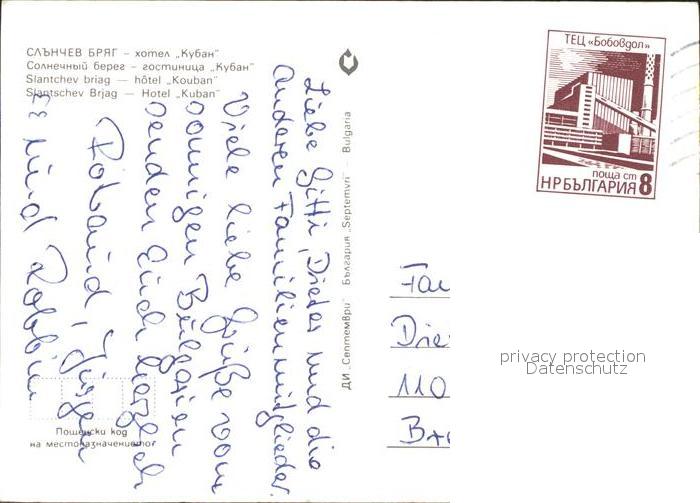 СЛЪНЧЕВ БРЯГ – хотел „Кубан"
Солнечный берег – гостиница „Кубан"
Slantchev briag — hôtel „Kouban"
Slantschev Brjag — Hotel „Kuban"
ТЕЦ «Бобовдол»
поща ст
НРБЪЛГАРИЯ 8
ДИ „Септември" България „Septemvri" – Bulgaria
Liebe Gitti, Dieter und die
anderen Familienmitglieder.
Viele liebe Grüße vom
sonnigen Bulgarien
senden Euch herzlich
Roland, Jürgen
und Robbin
Fam
Die
110
privacy protection
Datenschutz
Пощенски код
на местоназначението